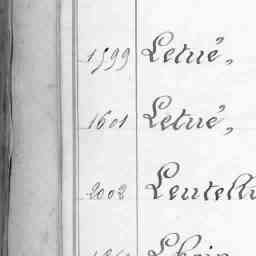 1599 Letué,
1601 Letué,
2002 Leutelli